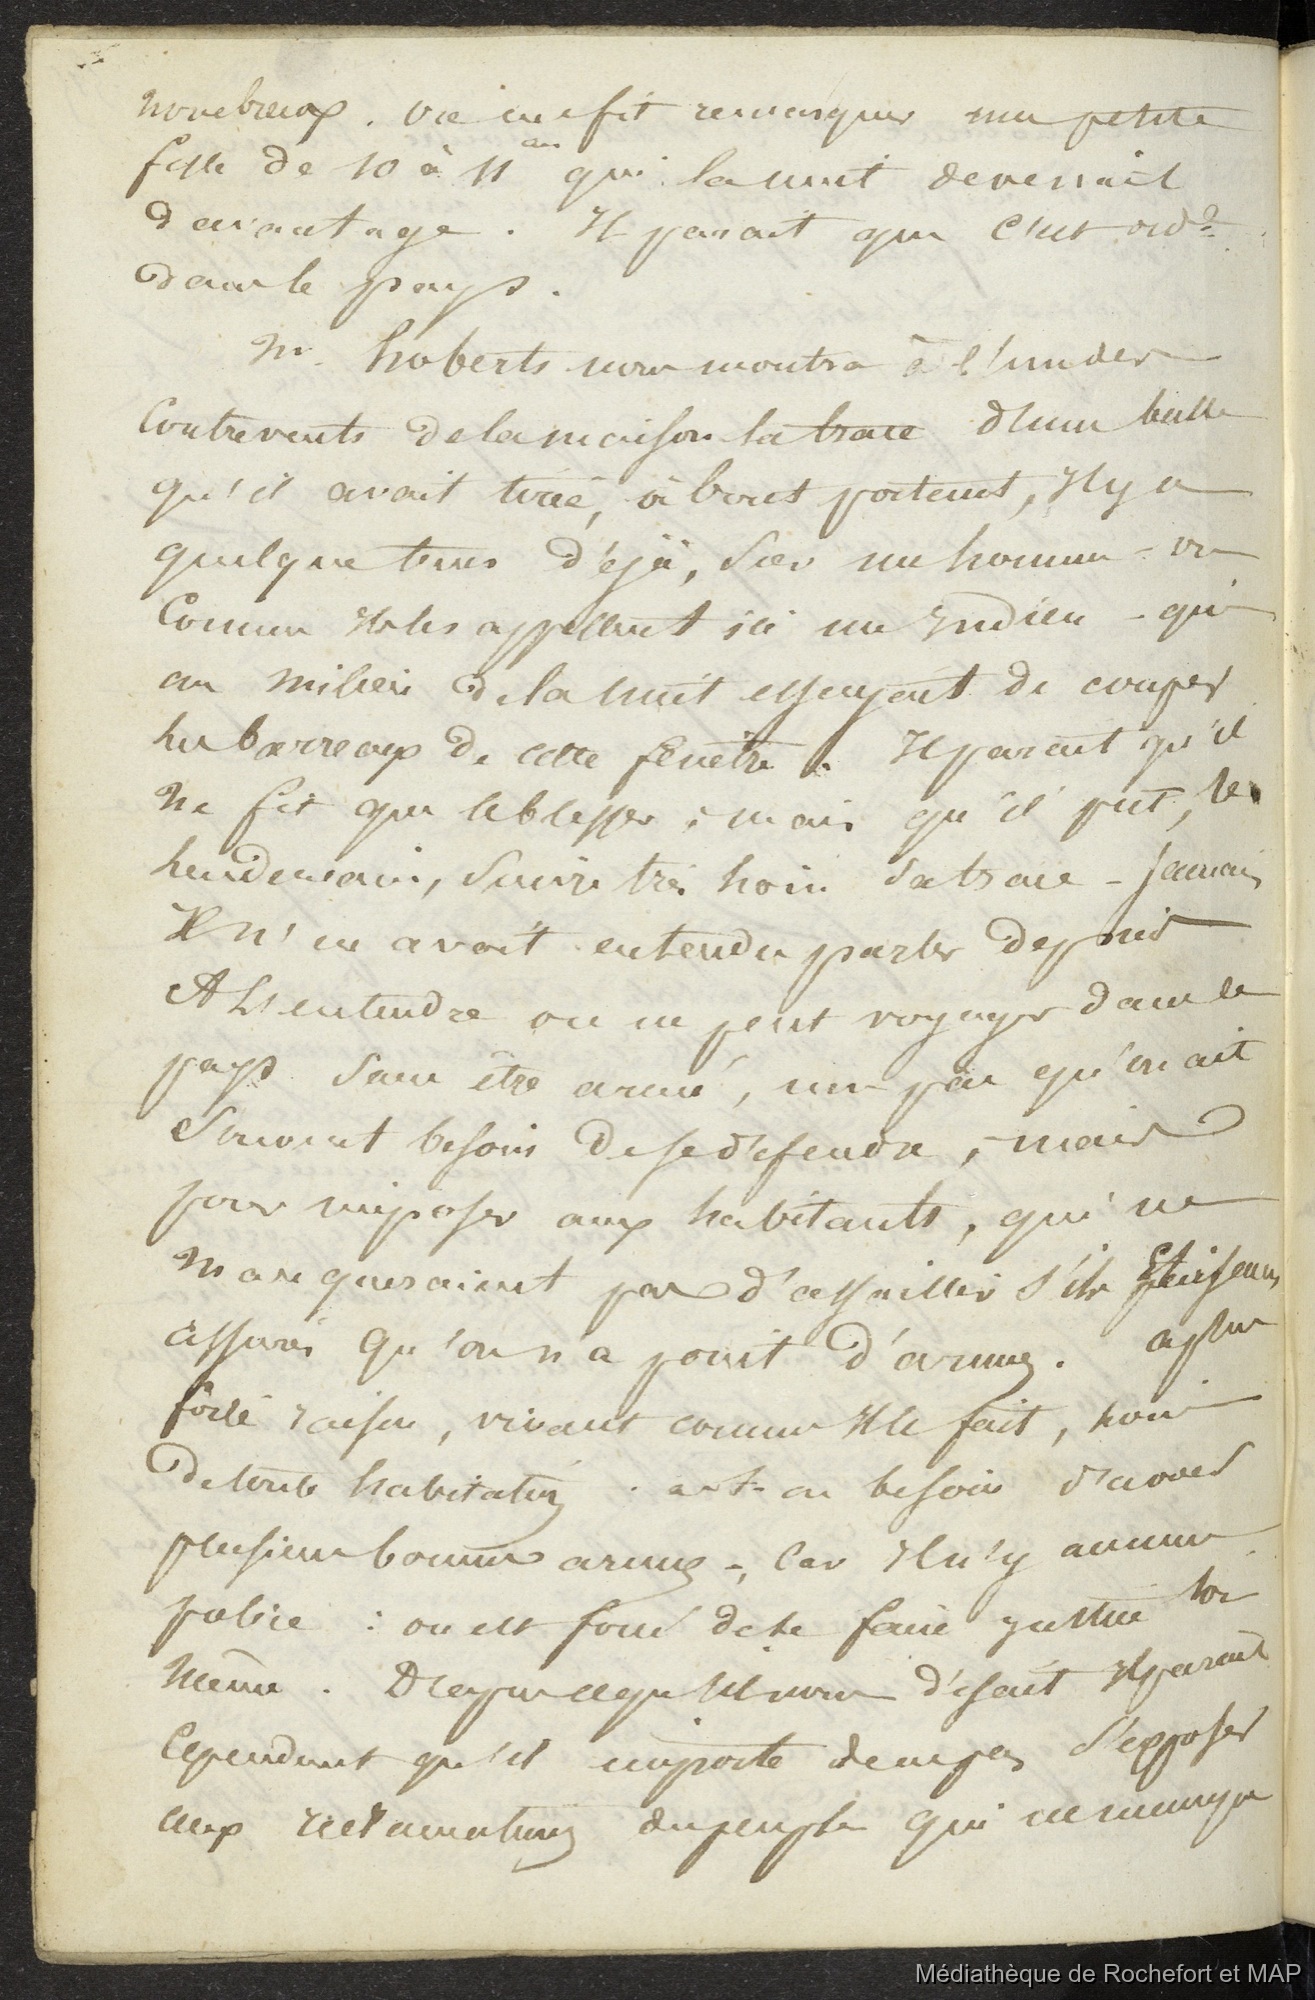 nombreux. On me fit remarquer une petite
fille de 10 à 11 ans qui la nuit devenait
davantage. Il parait que c'est ord.re
dans le pays.
M. Roberts nous montra à l'un des
Contrevents de la maison la trace d'une balle
qu'il avait tirée, à bout portant, Il y a
quelque tems déjà, sur un homme - ou
Comme Ils les appellent ici un Indien - qui
au milieu de la nuit essayait de couper
les barreaux de cette fenêtre. Il parait qu'il
ne fit que le blesser ; mais qu'il put, le
lendemain, suivre très loin sa trace - Jamais
Il n'en avait entendu parler depuis
A l'entendre on ne peut voyager dans le
pays sans être armé, non pas qu'on ait
souvent besoin de se défendre, mais
pour imposer aux habitants, qui ne
manqueraient pas d'assaillir s'ils étaient
assurés qu'on n'a point d'armes. a plus
forte raison, vivant comme Il le fait, loin
de toute habitation a-t-on besoin d'avoir
plusieurs bonnes armes -, Car Il n'y aucune
police : on est forcé de se faire justice soi
même. D'après ce qu'il nous disait Il parait
Cependant qu'il importe de ne pas s'exposer
aux réclamations du peuple qui ne manque
Médiathèque de Rochefort et MAP